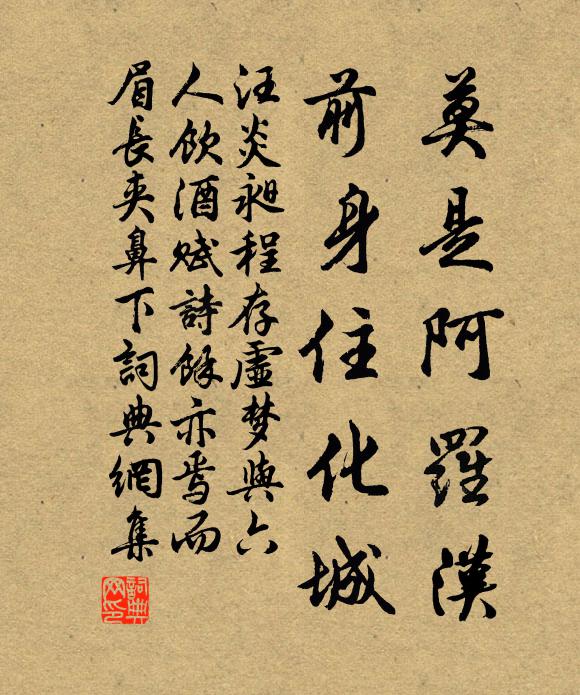 莫是阿羅漢
前身住化城
汪炎昶程存虛梦與六
人飲酒賦詩餘亦焉而
眉長夾鼻下詞典網集
詞典
网印